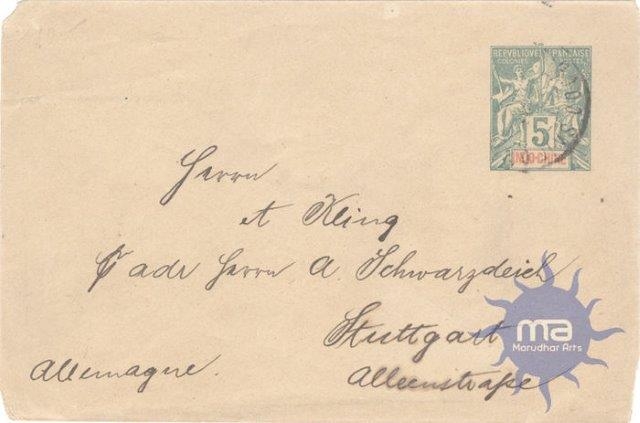 REPUBLIQUE FRANÇAISE
COLONIES POSTES
5
INDO-CHINE
Herrn
A Kling
adr Herrn A. Schwarzdeich
Stuttgart
Alleenstraße
Allemagne.
ma
Marudhar Arts